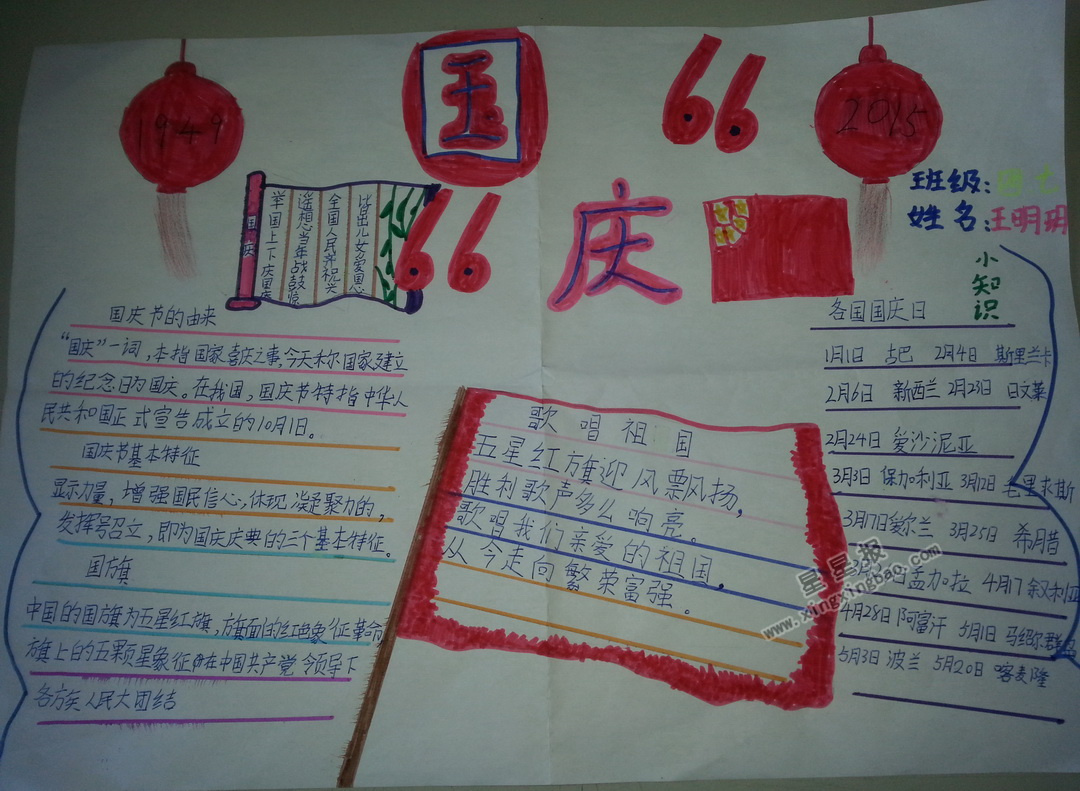 1949
国
66
2015
班级:
姓名:王明玥
国庆
华出儿女爱国忠
全国人民齐祝兴
遥想当年战鼓惊
举国上下庆国庆
66
庆
小知识
国庆节的由来
“国庆”一词,本指国家喜庆之事,今天称国家建立
的纪念日为国庆。在我国,国庆节特指中华人
民共和国正式宣告成立的10月1日。
国庆节基本特征
显示力量,增强国民信心,体现凝聚力的,
发挥号召立,即为国庆庆典的三个基本特征。
国旗
中国的国旗为五星红旗,旗面的红色象征革命,
旗上的五颗星象征在中国共产党领导下
各方矢人民大团结
歌唱祖国
五星红旗迎风飘扬,
胜利歌声多么响亮。
歌唱我们亲爱的祖国,
从今走向繁荣富强。
各国国庆日
1月1日 古巴 2月4日 斯里兰卡
2月6日 新西兰 2月23日 日文莱
2月24日 爱沙泥亚
3月3日 保加利亚 3月12日 毛里求斯
3月17日爱尔兰 3月25日 希腊
日孟加拉 4月17叙利亚
4月28日阿富汗 5月1日 马绍尔群岛
5月3日 波兰 5月20日 喀麦隆
星星报
www.xingxingbao.com